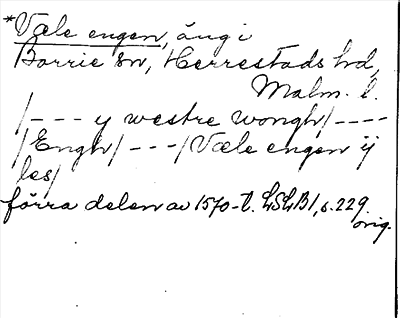 *Væle engen, äng i
Borrie sn, Herrestads hd,
Malm. l.
/--- y westre wongh/----
/Engh/---/Væle engen ij
les/
förra delen av 1570-t. LSLB1, s. 229
orig.